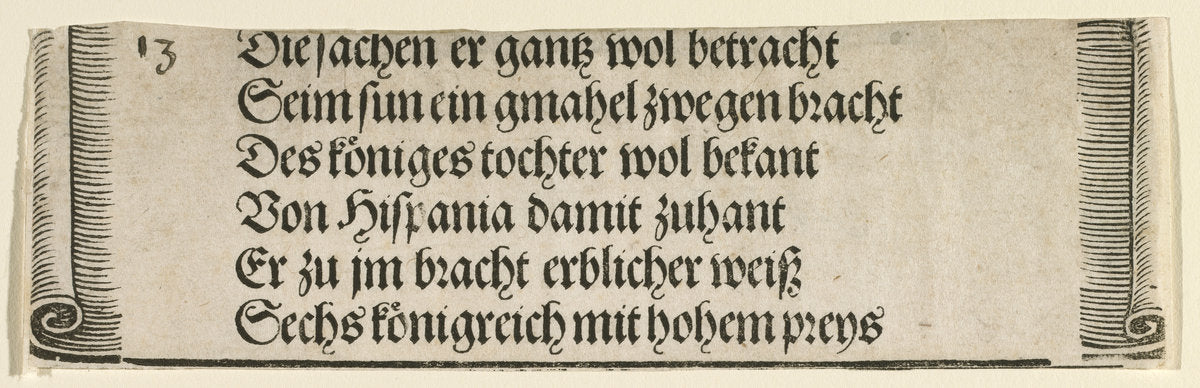 13
Die sachen er gantz wol betracht
Seim sun ein gmahel zwegen bracht
Des koͤniges tochter wol bekant
Von Hispania damit zuhant
Er zu jm bracht erblicher weiß
Sechs koͤnigreich mit hohem preys